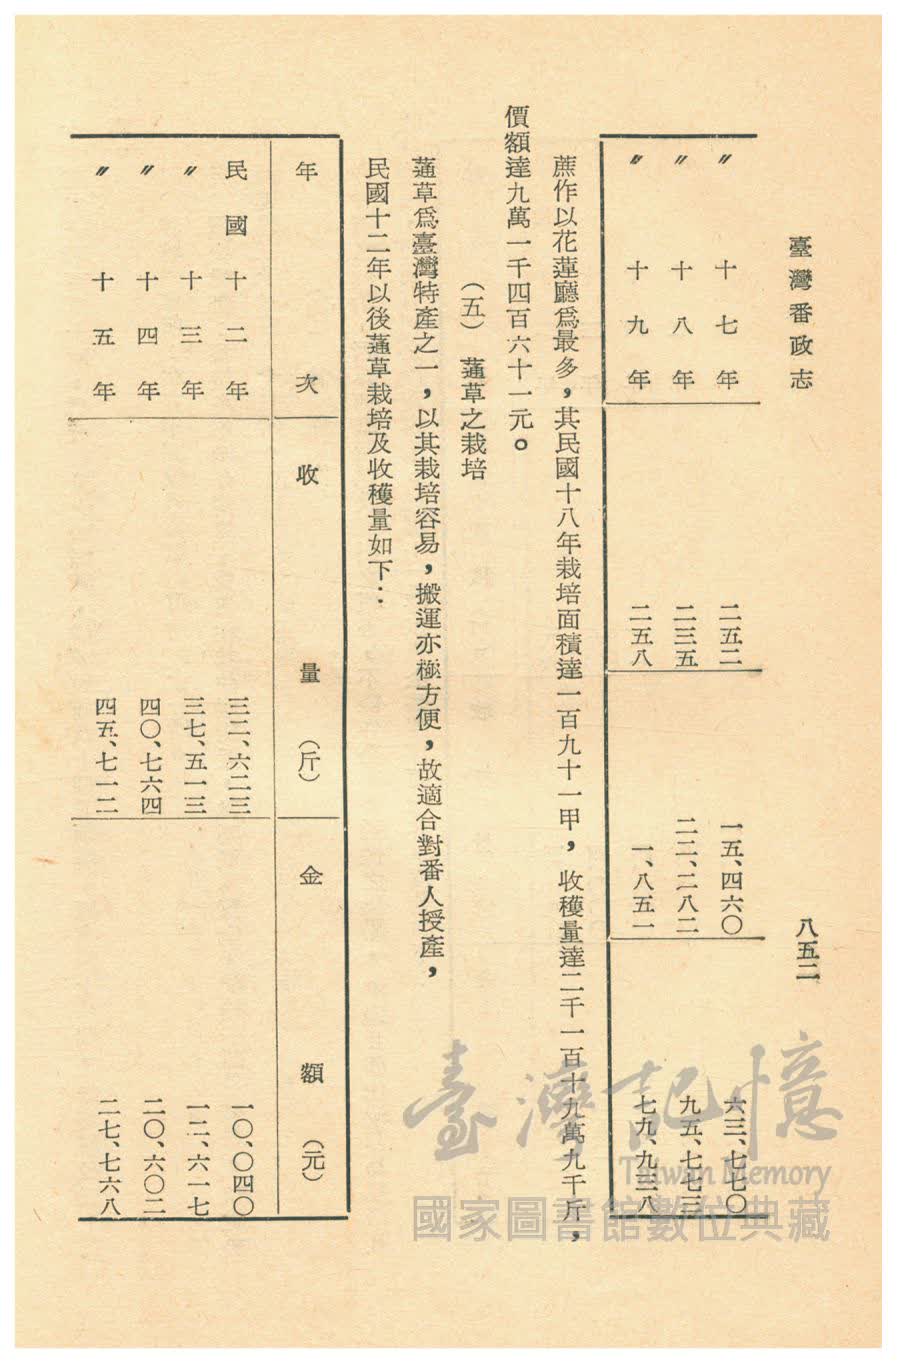 臺灣番政志
八五二
〃 十七年 二五二 一五、四六〇 六三、七七〇
〃 十八年 二三五 二二、二八二 九五、七七三
〃 十九年 二五八 一、八五一 七九、九三八
蔗作以花蓮廳爲最多，其民國十八年栽培面積達一百九十一甲，收穫量達二千一百十九萬九千斤，
價額達九萬一千四百六十一元。
（五） 蓪草之栽培
蓪草爲臺灣特產之一，以其栽培容易，搬運亦極方便，故適合對番人授產，
民國十二年以後蓪草栽培及收穫量如下：
年次 收量（斤） 金額（元）
民國十二年 三二、六二三 一〇、〇四〇
〃 十三年 三七、五一三 一二、六一七
〃 十四年 四〇、七六四 二〇、六〇二
〃 十五年 四五、七一二 二七、七六八
臺灣記憶
Taiwan Memory
國家圖書館數位典藏